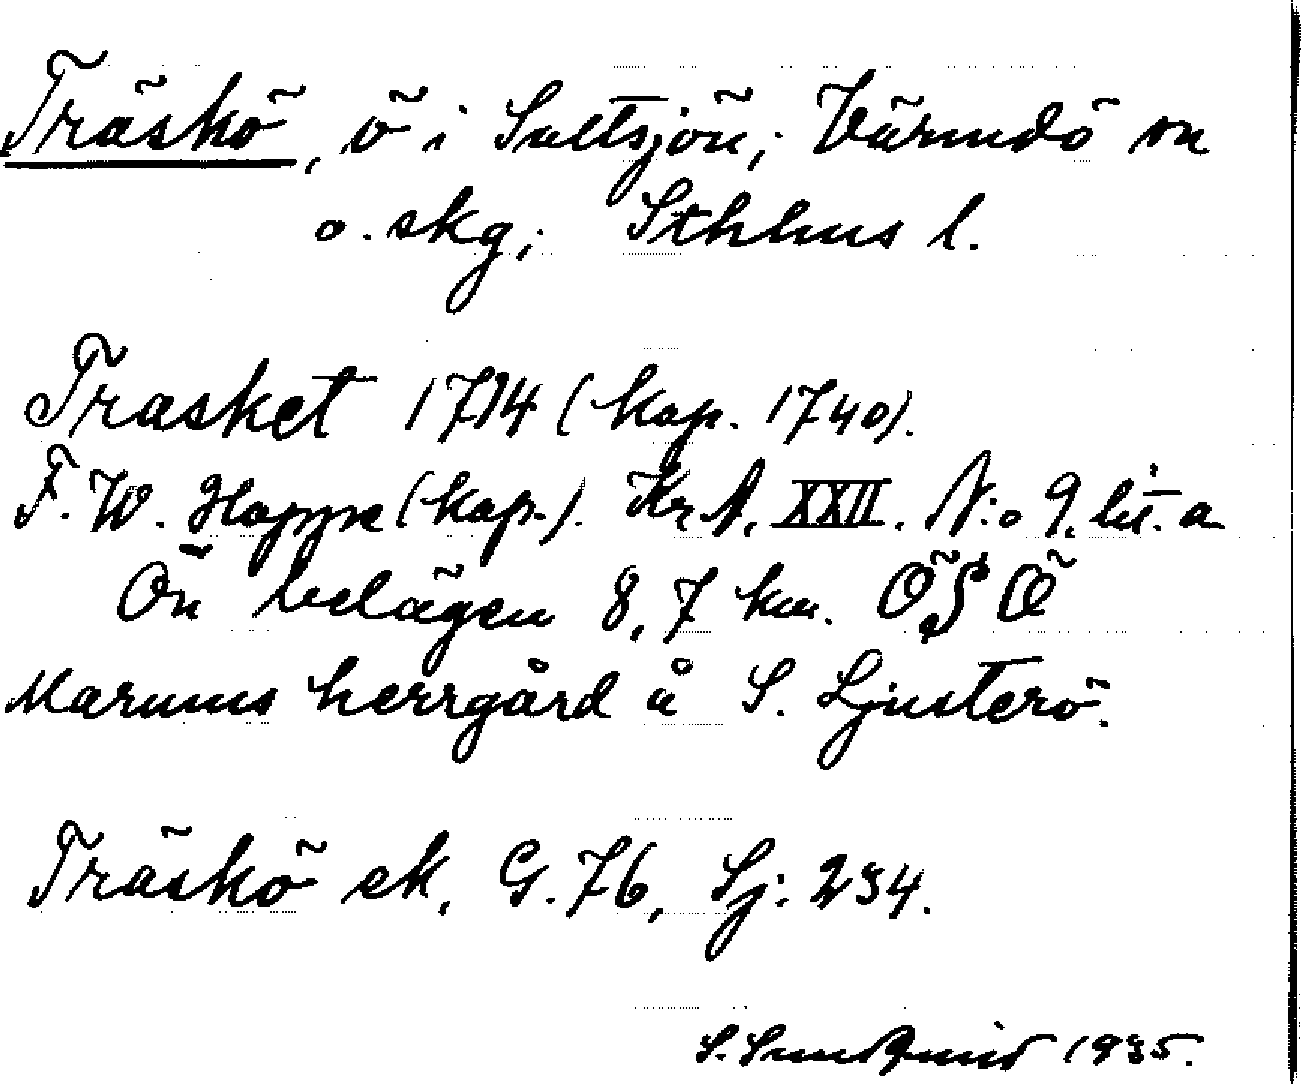 Träskö, ö i Saltsjön; Värmdö sn
o. skg; Sthlms l.
Trasket 1714 (kop. 1740).
F. W. Hoppe (kop.). Kr A. XXII. N:o 9. lit. a
Ön belägen 8,7 km. ÖSÖ
Marums herrgård å S. Ljusterö.
Träskö ek, G. 76, Sj: 234.
S. Sundqvist 1935.